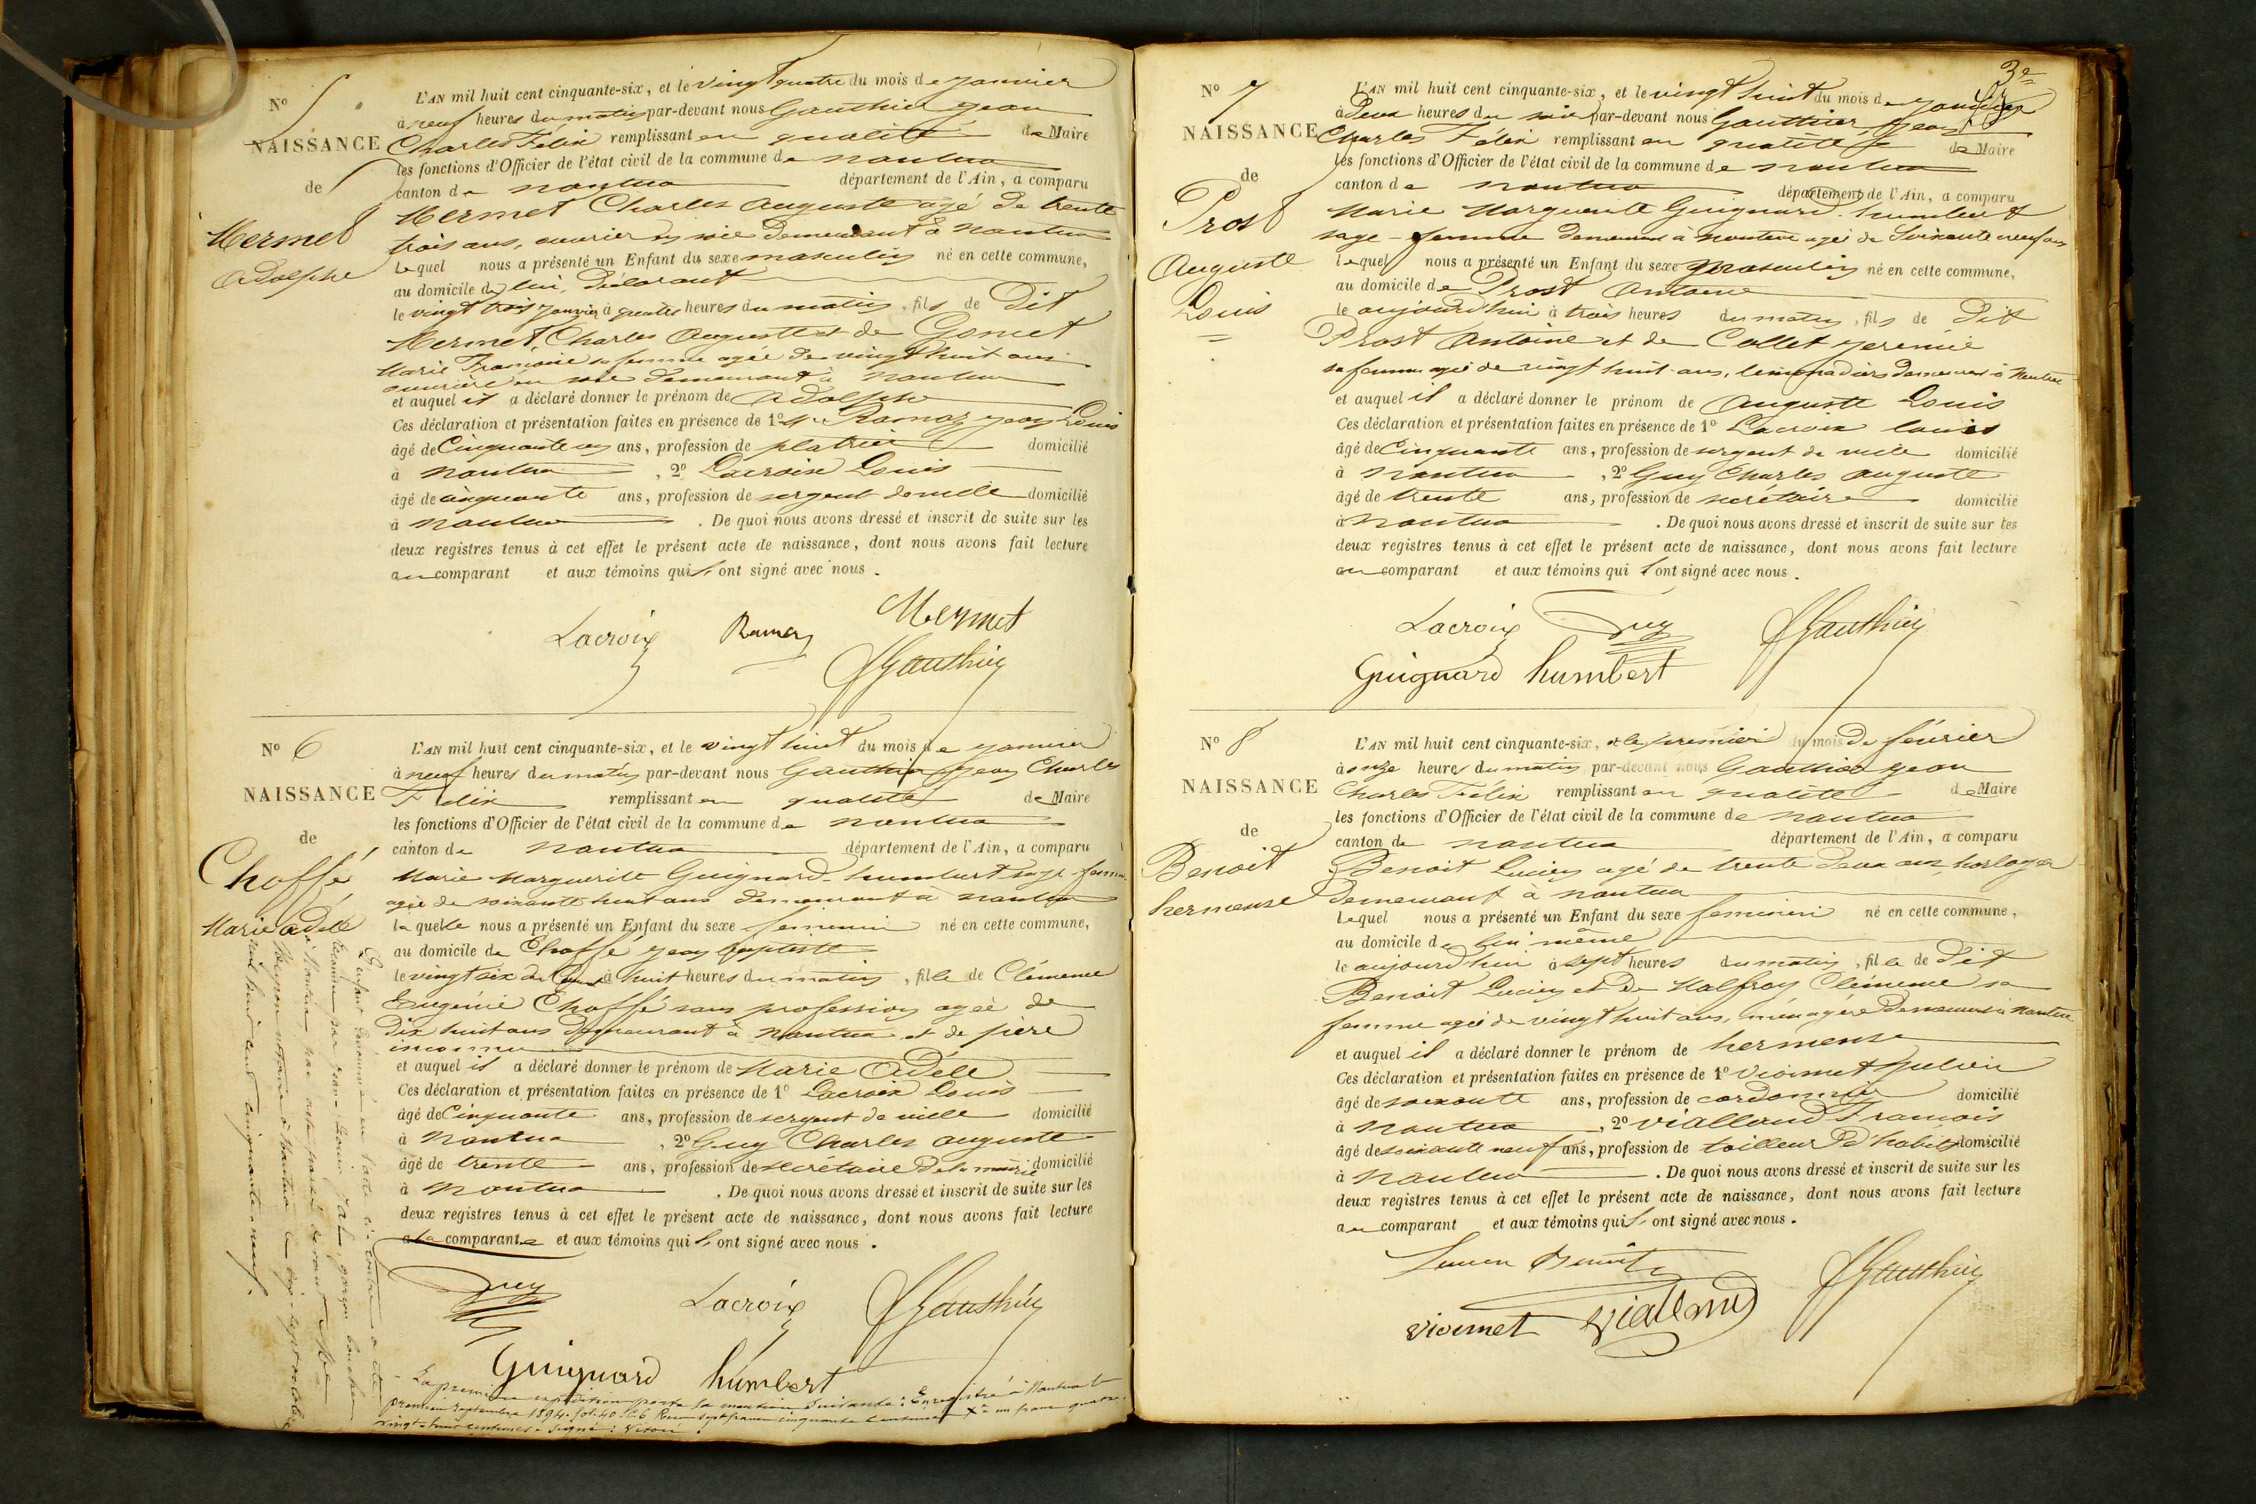 N° 5
NAISSANCE
de
Mermet
Adolphe
L'AN mil huit cent cinquante-six, et le vingt quatre du mois de janvier
à neuf heures du matin par-devant nous Gauthier Jean
Charles Félix remplissant en qualité de Maire
les fonctions d'Officier de l'état civil de la commune de nantua
canton de nantua département de l'Ain, a comparu
Mermet Charles Auguste agé de trente
trois ans, ouvrier en soie demeurant à nantua
lequel nous a présenté un Enfant du sexe masculin né en cette commune,
au domicile de lui, Déclarant
le vingt trois janvier à quatre heures du matin, fils de Dit
Mermet Charles Auguste et de Goncet
Marie Françoise sa femme agée de vingt huit ans
ouvrière en soie demeurant à nantua
et auquel il a déclaré donner le prénom de Adolphe
Ces déclaration et présentation faites en présence de 1° Mr Ramoz Jean Louis
âgé de Cinquante un ans, profession de platrier domicilié
à nantua, 2° Lacroix Louis
âgé de cinquante ans, profession de sergent de ville domicilié
à nantua. De quoi nous avons dressé et inscrit de suite sur les
deux registres tenus à cet effet le présent acte de naissance, dont nous avons fait lecture
au comparant et aux témoins qui l'ont signé avec nous.
Mermet
Lacroix Ramoz
Gauthier
N° 6
NAISSANCE
de
Choffé
Marie Adèle
L'AN mil huit cent cinquante-six, et le vingt huit du mois de janvier
à neuf heures du matin par-devant nous Gauthier Jean Charles
Félix remplissant en qualité de Maire
les fonctions d'Officier de l'état civil de la commune de nantua
canton de nantua département de l'Ain, a comparu
Marie Marguerite Guignard-humbert sage-femme
agée de soixante huit ans demeurant à nantua
laquelle nous a présenté un Enfant du sexe feminin né en cette commune,
au domicile de Choffé Jean baptiste
le vingt six du Ct à huit heures du matin, fille de Clémence
Eugénie Choffé sans profession agée de
dix huit ans demeurant à nantua et de père
inconnu
et auquel il a déclaré donner le prénom de Marie Adèle
Ces déclaration et présentation faites en présence de 1° Lacroix Louis
âgé de Cinquante ans, profession de sergent de ville domicilié
à nantua, 2° Guy Charles auguste
âgé de trente ans, profession de secrétaire de la mairie domicilié
à nantua. De quoi nous avons dressé et inscrit de suite sur les
deux registres tenus à cet effet le présent acte de naissance, dont nous avons fait lecture
à la comparante et aux témoins qui l'ont signé avec nous.
Guy Lacroix Gauthier
Guignard humbert
L'enfant dénommé en l'acte ci-contre a été
reconnu par Jean-Louis garçon boucher
à Nantua par acte passé devant Me
notaire à Nantua le vingt-sept octobre
mil huit cent cinquante-neuf.
La première expédition porte la mention suivante : Enregistré à Nantua le
premier Septembre 1894 fol. 40 Reçu sept francs cinquante centimes un franc quatre
vingt-huit centimes. Signé :
3e
N° 7
NAISSANCE
de
Prost
Auguste
Louis
L'AN mil huit cent cinquante-six, et le vingt huit du mois de janvier
à Deux heures du soir par-devant nous Gauthier Jean
Charles Félix remplissant en qualité de Maire
les fonctions d'Officier de l'état civil de la commune de nantua
canton de nantua département de l'Ain, a comparu
Marie Marguerite Guignard-humbert
sage-femme demeurant à nantua agée de Soixante neuf ans
lequel nous a présenté un Enfant du sexe masculin né en cette commune,
au domicile de Prost Antoine
le aujourd'hui à trois heures du matin, fils de Dit
Prost Antoine et de Collet Jeremie
sa femme agée de vingt huit ans, limonadiers demeurant à Nantua
et auquel il a déclaré donner le prénom de Auguste Louis
Ces déclaration et présentation faites en présence de 1° Lacroix louis
âgé de Cinquante ans, profession de sergent de ville domicilié
à nantua, 2° Guy Charles auguste
âgé de trente ans, profession de secrétaire domicilié
à nantua. De quoi nous avons dressé et inscrit de suite sur les
deux registres tenus à cet effet le présent acte de naissance, dont nous avons fait lecture
au comparant et aux témoins qui l'ont signé avec nous.
Lacroix Guy Gauthier
Guignard humbert
N° 8
NAISSANCE
de
Benoit
hermense
L'AN mil huit cent cinquante-six, et le premier du mois de février
à onze heures du matin par-devant nous Gauthier Jean
Charles Félix remplissant en qualité de Maire
les fonctions d'Officier de l'état civil de la commune de nantua
canton de nantua département de l'Ain, a comparu
Benoit Lucien agé de trente deux ans, horloger
demeurant à nantua
lequel nous a présenté un Enfant du sexe feminin né en cette commune,
au domicile de lui même
le aujourd'hui à sept heures du matin, fille de Dit
Benoit Lucien et de Malfroy Clémence sa
femme agée de vingt huit ans, ménagère demeurant à nantua
et auquel il a déclaré donner le prénom de hermense
Ces déclaration et présentation faites en présence de 1° Viormet Julien
âgé de soixante ans, profession de cordonnier domicilié
à nantua, 2° Vialland François
âgé de soixante neuf ans, profession de tailleur d'habits domicilié
à nantua. De quoi nous avons dressé et inscrit de suite sur les
deux registres tenus à cet effet le présent acte de naissance, dont nous avons fait lecture
au comparant et aux témoins qui l'ont signé avec nous.
Lucien Benoit Gauthier
Viormet Vialland